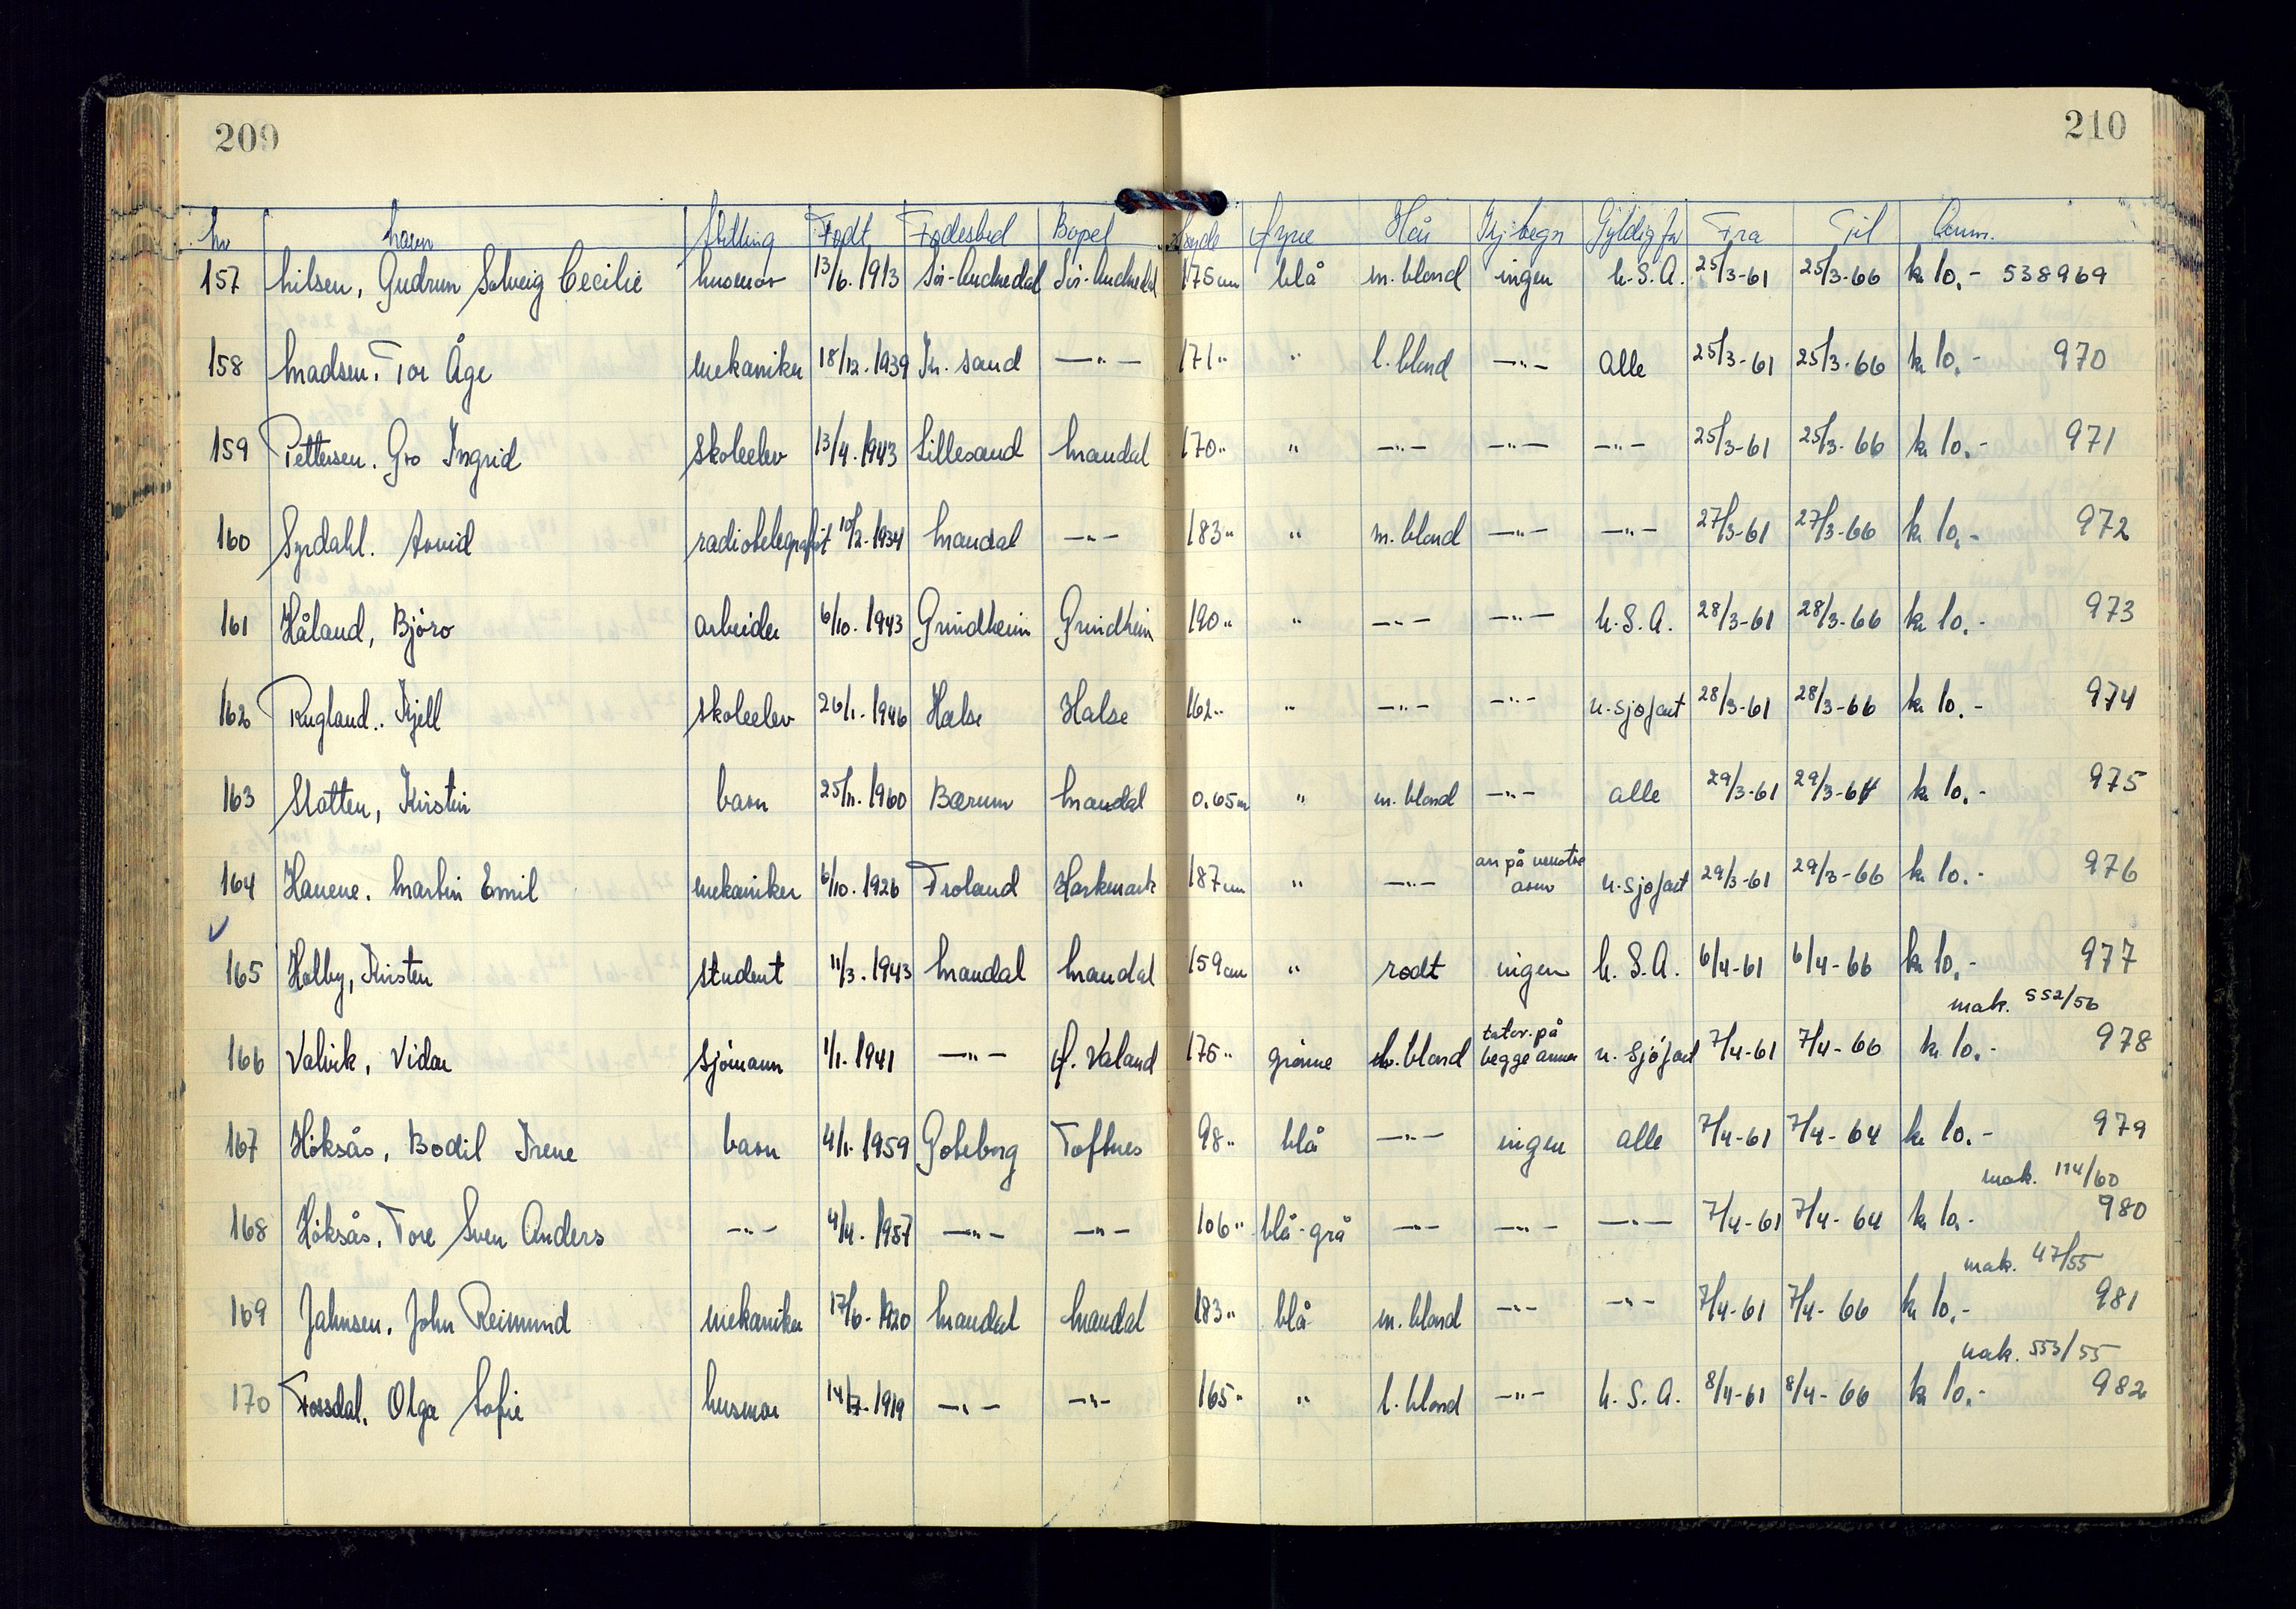 209 210
Nr Navn Stilling Født Fødested Bopel Høyde Øyne Hår Kj. tegn Gyldig for Fra Til Anm.
157 Nilsen, Gudrun Solveig Cecilie husmor 13/6. 1913 Sør-Audnedal Sør-Audnedal 175 cm blå m. blond ingen U.S.A. 25/3-61 25/3-66 kr 10.- 538969
158 Madsen, Tor Åge mekaniker 18/12. 1939 Kr. sand —"— 171 " " l. blond —"— Alle 25/3-61 25/3-66 kr 10.- 970
159 Pettersen, Gro Ingrid skoleelev 13/4. 1943 Lillesand Mandal 170 " " —"— —"— —"— 25/3-61 25/3-66 kr 10.- 971
160 Syrdahl, Arvid radiotelegrafist 10/2. 1934 Mandal —"— 183 " " m. blond —"— —"— 27/3-61 27/3-66 kr 10.- 972
161 Håland, Björo arbeider 6/10. 1943 Grindheim Grindheim 190 " " —"— —"— U.S.A. 28/3-61 28/3-66 kr 10.- 973
162 Rugland, Kjell skoleelev 26/1. 1946 Halse Halse 162 " " —"— —"— u. sjøfart 28/3-61 28/3-66 kr 10.- 974
163 Slotten, Kirstin barn 25/11. 1960 Bærum Mandal 0.65 m " m. blond —"— alle 29/3-61 29/3-64 kr 10.- 975
164 Hauene, Martin Emil mekaniker 6/10. 1926 Froland Harkmark 187 cm " —"— arr på venstre arm u. sjøfart 29/3-61 29/3-66 kr 10.- 976
165 Holby, Kirsten student 11/3. 1943 Mandal Mandal 159 cm " rødt ingen U.S.A. 6/4-61 6/4-66 kr 10.- 977
mak. 552/56
166 Valvik, Vidar sjömann 1/1. 1941 —"— Ø. Valand 175 " grönne m. blond tator. på begge armer u. sjöfart 7/4-61 7/4-66 kr 10.- 978
167 Höksås, Bodil Irene barn 4/1. 1959 Göteborg Toftnes 98 " blå —"— ingen alle 7/4-61 7/4-64 kr 10.- 979
mak. 114/60
168 Höksås, Tore Sven Anders —"— 4/4. 1957 —"— —"— 106 " blå-grå —"— —"— —"— 7/4-61 7/4-64 kr 10.- 980
mak. 47/55
169 Jahnsen, John Reimund mekaniker 17/6. 1920 Mandal Mandal 183 " blå m. blond —"— —"— 7/4-61 7/4-66 kr 10.- 981
mak. 553/55
170 Fossdal, Olga Sofie husmor 14/7. 1919 —"— —"— 165 " " l. blond —"— U.S.A. 8/4-61 8/4-66 kr 10.- 982